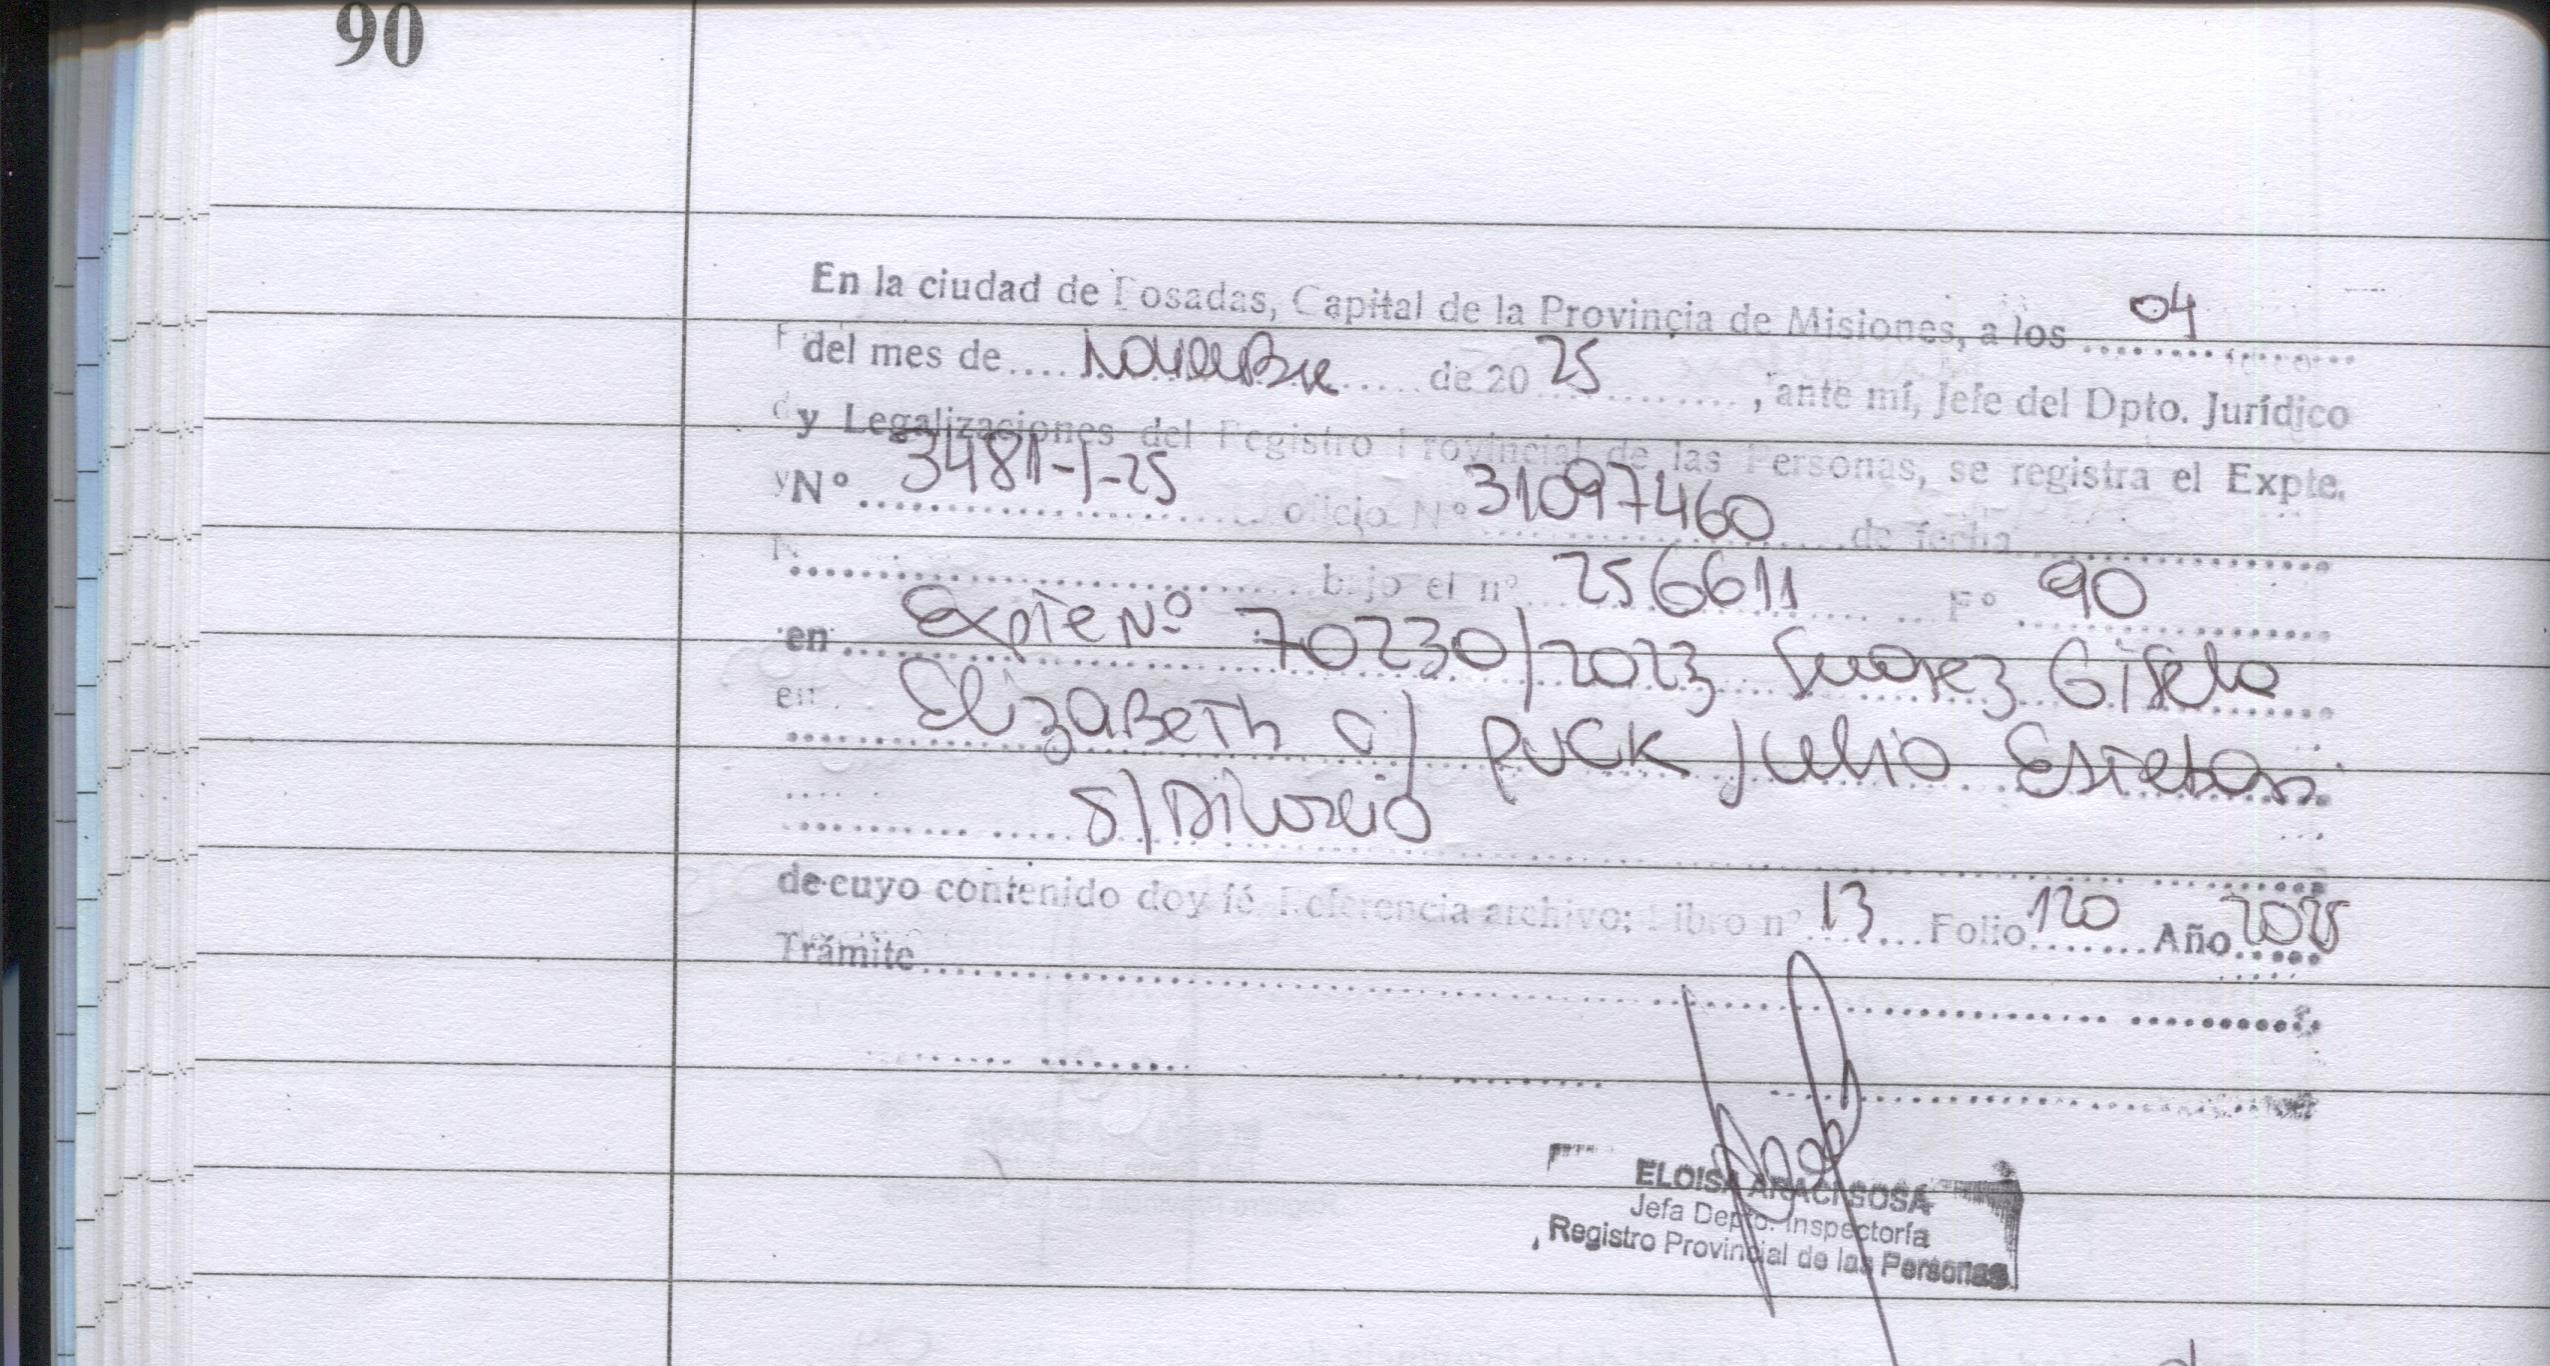 90
En la ciudad de Posadas, Capital de la Provincia de Misiones, a los 04
del mes de Noviembre de 2025, ante mí, Jefe del Dpto. Jurídico
y Legalizaciones del Registro Provincial de las Personas, se registra el Expte.
Nº 3481-J-25 oficio Nº 31097460 de fecha
bajo el nº 256611 Fº 90
en Expte Nº 70230/2023 Suarez Gisela
Elizabeth c/ Puck Julio Esteban
S/Divorcio
de cuyo contenido doy fé. Referencia archivo: Libro nº 13 Folio 120 Año 2025
Trámite
ELOISA ARACI SOSA
Jefa Depto. Inspectoría
Registro Provincial de las Personas